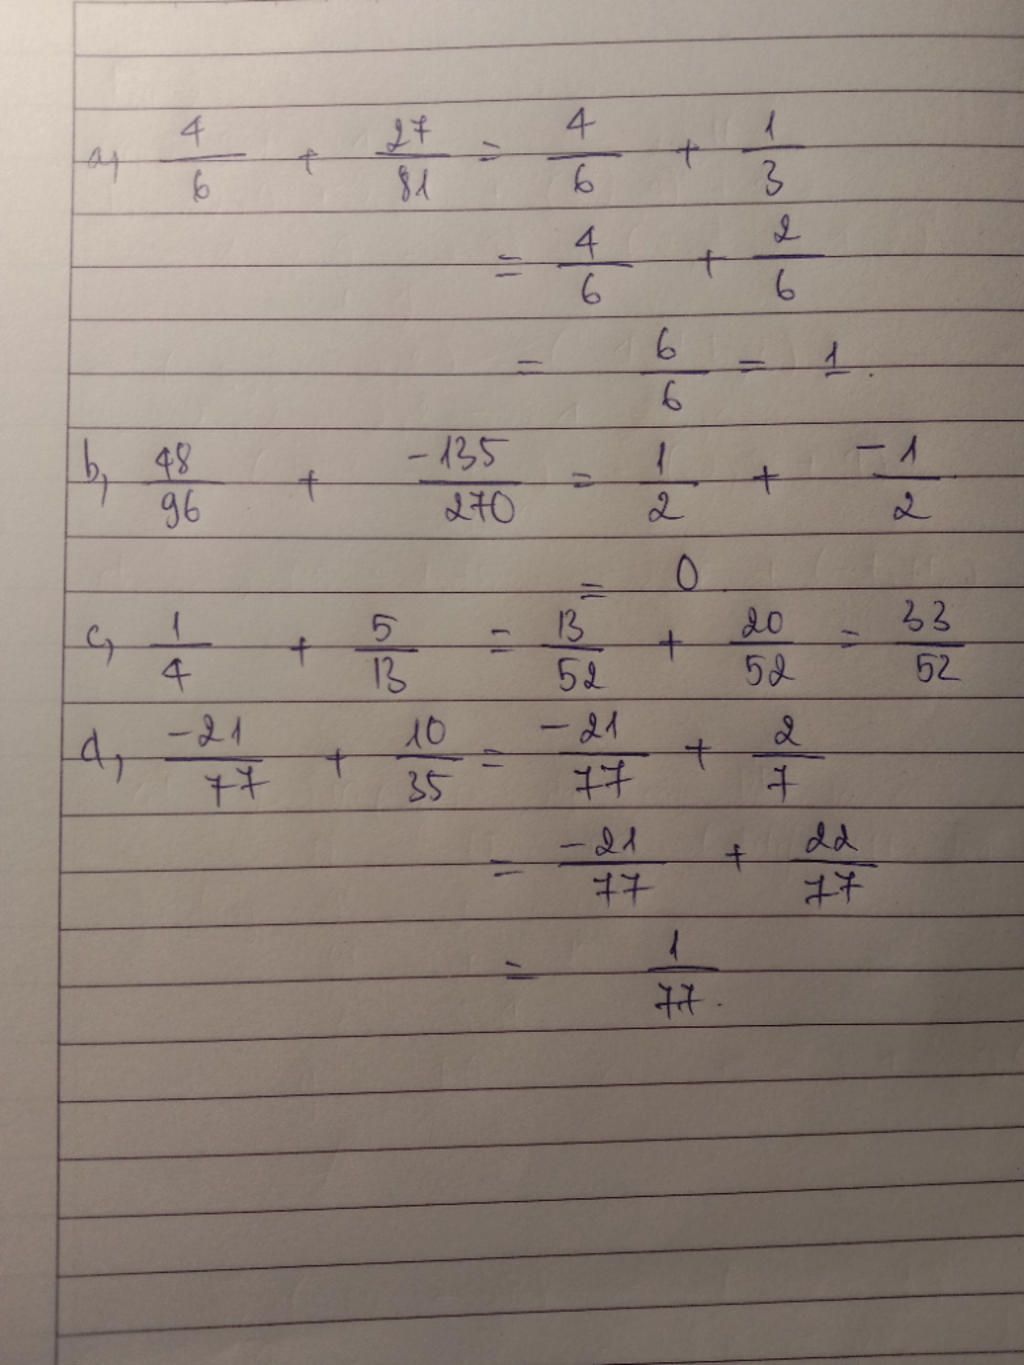 a, 4/6 + 27/81 = 4/6 + 1/3
= 4/6 + 2/6
= 6/6 = 1.
b, 48/96 + -135/270 = 1/2 + -1/2
= 0
c, 1/4 + 5/13 = 13/52 + 20/52 = 33/52
d, -21/77 + 10/35 = -21/77 + 2/7
= -21/77 + 22/77
= 1/77.